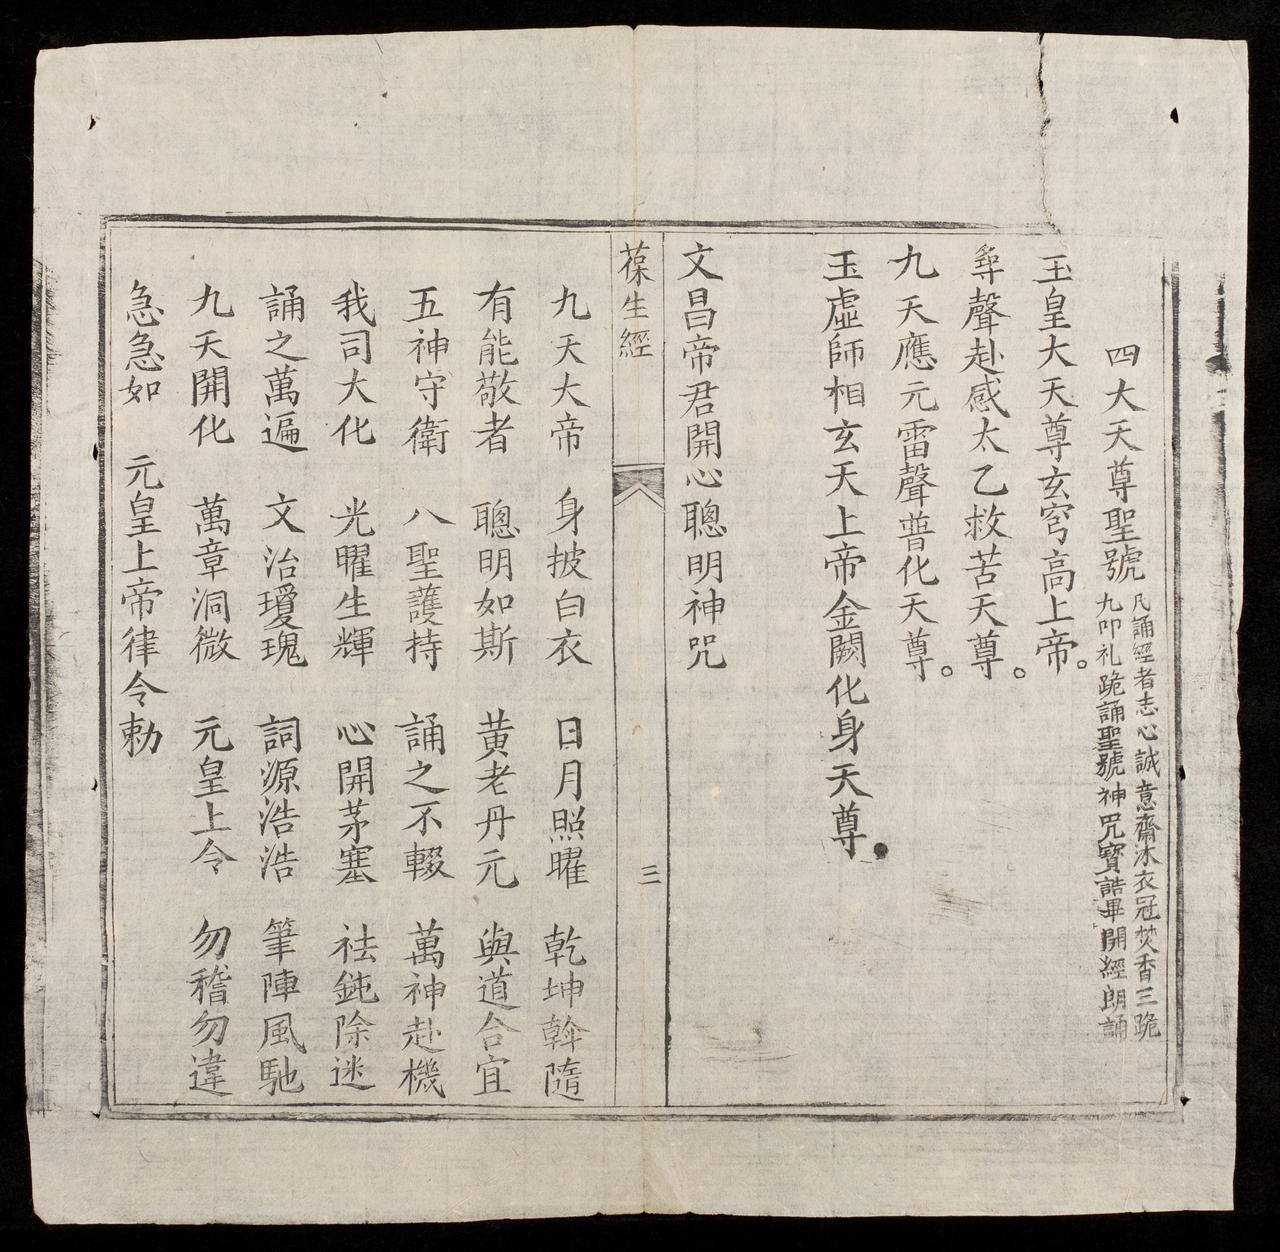 四大天尊聖號
凡誦經者志心誠意齋沐衣冠焚香三跪
九叩礼跪誦聖號神咒寶誥畢開經朗誦
玉皇大天尊玄穹高上帝。
尋聲赴感太乙救苦天尊。
九天應元雷聲普化天尊。
玉虛師相玄天上帝金闕化身天尊。
文昌帝君開心聰明神咒
葆生經
三
九天大帝 身披白衣 日月照曜 乾坤斡隨
有能敬者 聰明如斯 黄老丹元 與道合宜
五神守衛 八聖護持 誦之不輟 萬神赴機
我司大化 光曜生輝 心開茅塞 祛鈍除迷
誦之萬遍 文治瓊瑰 詞源浩浩 筆陣風馳
九天開化 萬章洞微 元皇上令 勿稽勿違
急急如 元皇上帝律令勅